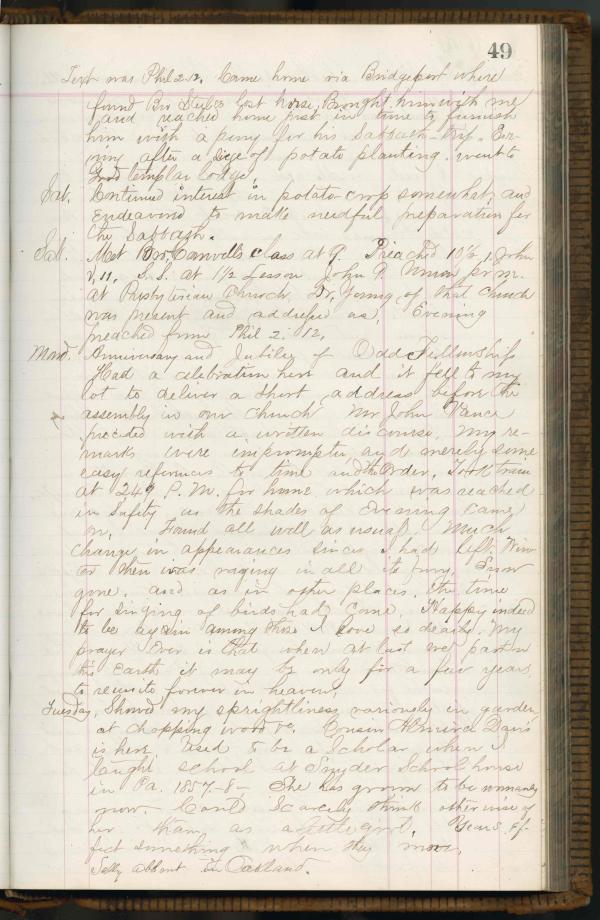 49
Text was Phil 2-12. Came home via Bridgeport where
found Bro Steel's lost horse, Brought him with me
and reached home just in time to furnish
him with a pony for his Sabbath trip. Eve-
ning after a siege of potato planting. went to
Good templar lodge,
Sat. Continued interest in potato crop somewhat, and
Endeavored to make needful preparation for
the Sabbath.
Sab. Met Bro. class at 9. Preached 10½ 1. John
V, 11, S.S. at 1½ Lesson John 9. Union pr. m.
at Presbyterian Church, Dr. Young of that Church
was present and addressed us, Evening
preached from Phil 2. 12,
Mond. Anniversary and Jubilee of Odd Fellowship
Had a celebration here and it fell to my
lot to deliver a short address before the
assembly in our Church Mr John Vance
preceded with a written discourse, My re-
marks were impromptu, and merely some
easy references to time and the Order. Took train
at 2.49 P. M. for home which was reached
in safety as the shades of Evening came
on, Found all well as usual. Much
change in appearances since I had left. Win-
er then was raging in all its fury, Snow
gone, and as in other places, the time
for singing of birds had come. Happy indeed
to be again among those I love so dearly. My
prayer Ever is that when at last we part on
this Earth it may be only for a few years
to reunite forever in heaven,
Tuesday, Showed my sprightliness variously in garden,
at chopping wood &c. Cousin Almira Davis
is here Used to be a Scholar when I
taught school at Snyder School house
in Pa. 1857-8-, She has grown to be womanly
now. Could scarcely think otherwise of
her than as a little girl, Years ef-
fect something when they move,
Sally absent in Oakland.